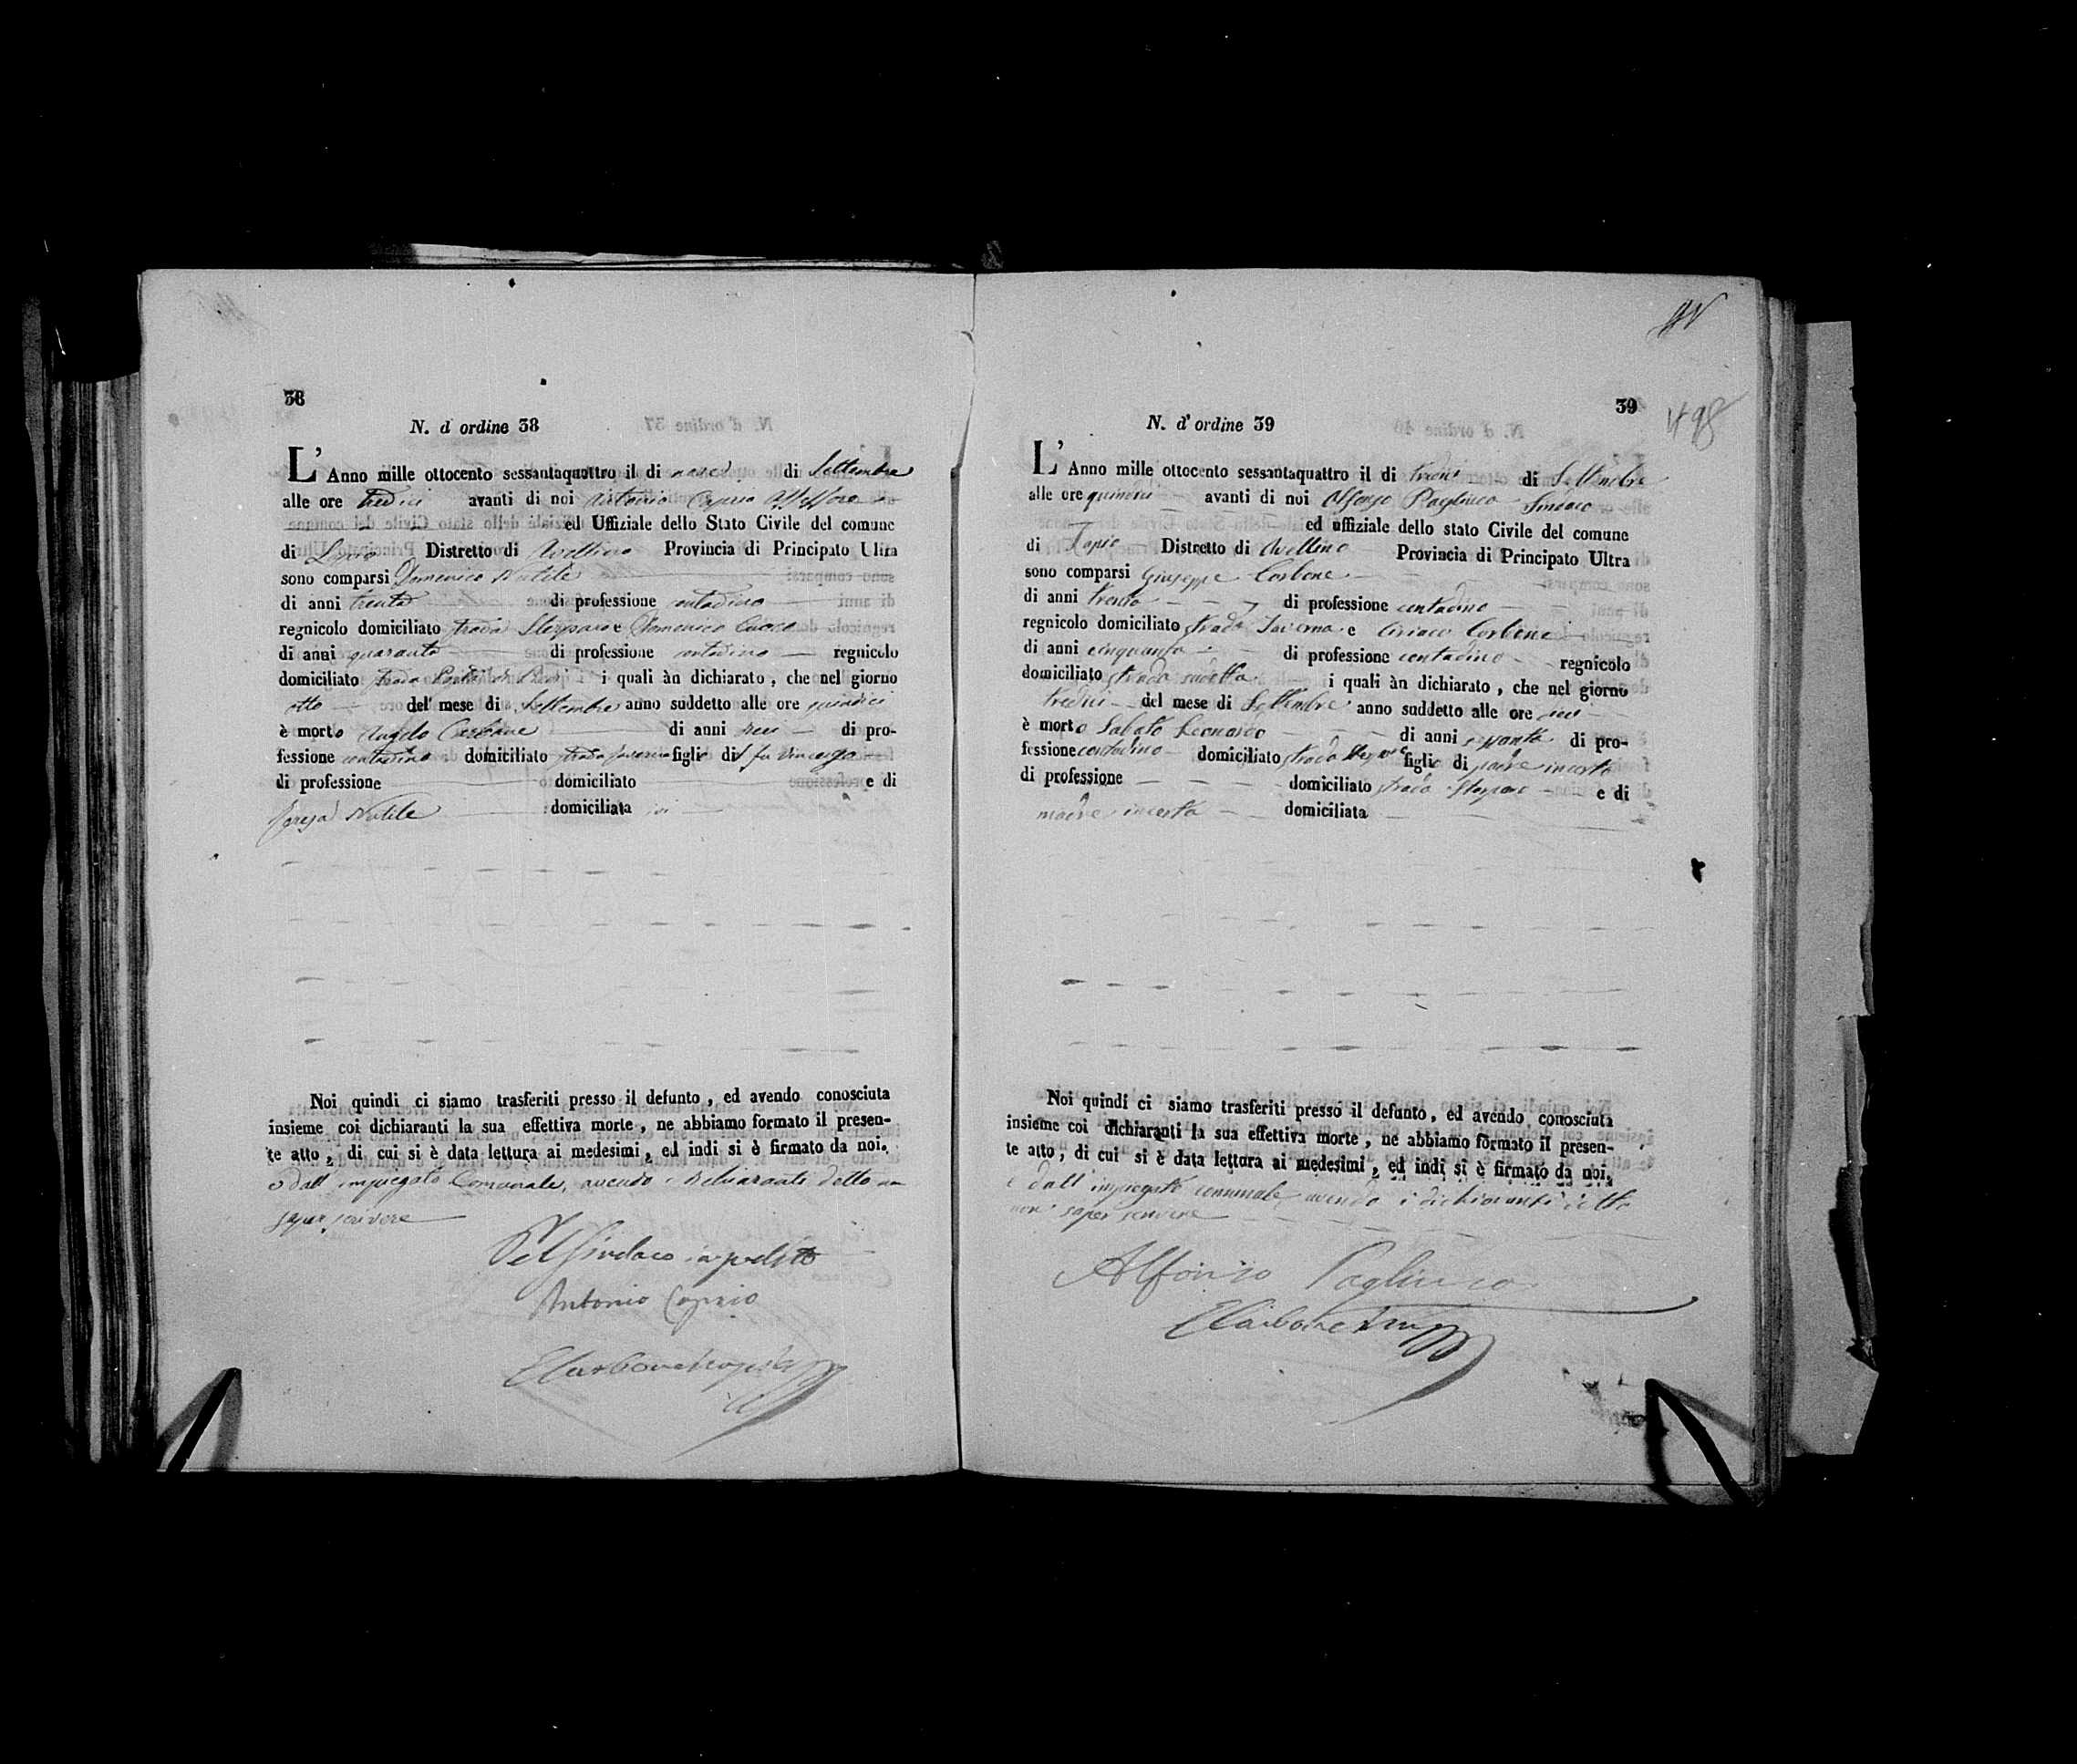 38
N. d'ordine 38
L' Anno mille ottocento sessantaquattro il di nove di Settembre
alle ore tredici avanti di noi Antonio Caprio Assessore
ed Uffiziale dello Stato Civile del comune
di Lapio Distretto di Avellino Provincia di Principato Ultra
sono comparsi Domenico Natile
di anni trenta di professione contadino
regnicolo domiciliato strada Sterparo e Domenico Cuoco
di anni quaranta di professione contadino regnicolo
domiciliato strada i quali àn dichiarato, che nel giorno
otto del mese di Settembre anno suddetto alle ore quindici
è morto Angelo Carbone di anni di pro-
fessione contadino domiciliato strada figlio del fu Vincenzo
di professione domiciliato e di
Teresa Natile domiciliata ivi
Noi quindi ci siamo trasferiti presso il defunto, ed avendo conosciuta
insieme coi dichiaranti la sua effettiva morte, ne abbiamo formato il presen-
te atto, di cui si è data lettura ai medesimi, ed indi si è firmato da noi.
e dall'impiegato Comunale, avendo i dichiaranti detto non
saper scrivere
Pel Sindaco impedito
Antonio Caprio
39
498
N. d'ordine 39
L' Anno mille ottocento sessantaquattro il di tredici di Settembre
alle ore quindici avanti di noi Alfonso Pagliuca Sindaco
ed uffiziale dello stato Civile del comune
di Lapio Distretto di Avellino Provincia di Principato Ultra
sono comparsi Giuseppe Carbone
di anni trenta di professione contadino
regnicolo domiciliato strada Taverna e Ciriaco Carbone
di anni cinquanta di professione contadino regnicolo
domiciliato strada sudetta i quali àn dichiarato, che nel giorno
tredici del mese di Settembre anno suddetto alle ore
è morto Sabato Leonardo di anni di pro-
fessione contadino domiciliato strada Sterparo figlio di padre incerto
di professione domiciliato strada Sterparo e di
madre incerta domiciliata
Noi quindi ci siamo trasferiti presso il defunto, ed avendo conosciuta
insieme coi dichiaranti la sua effettiva morte, ne abbiamo formato il presen-
te atto, di cui si è data lettura ai medesimi, ed indi si è firmato da noi.
e dall'impiegato comunale, avendo i dichiaranti detto
non saper scrivere
Alfonso Pagliuca